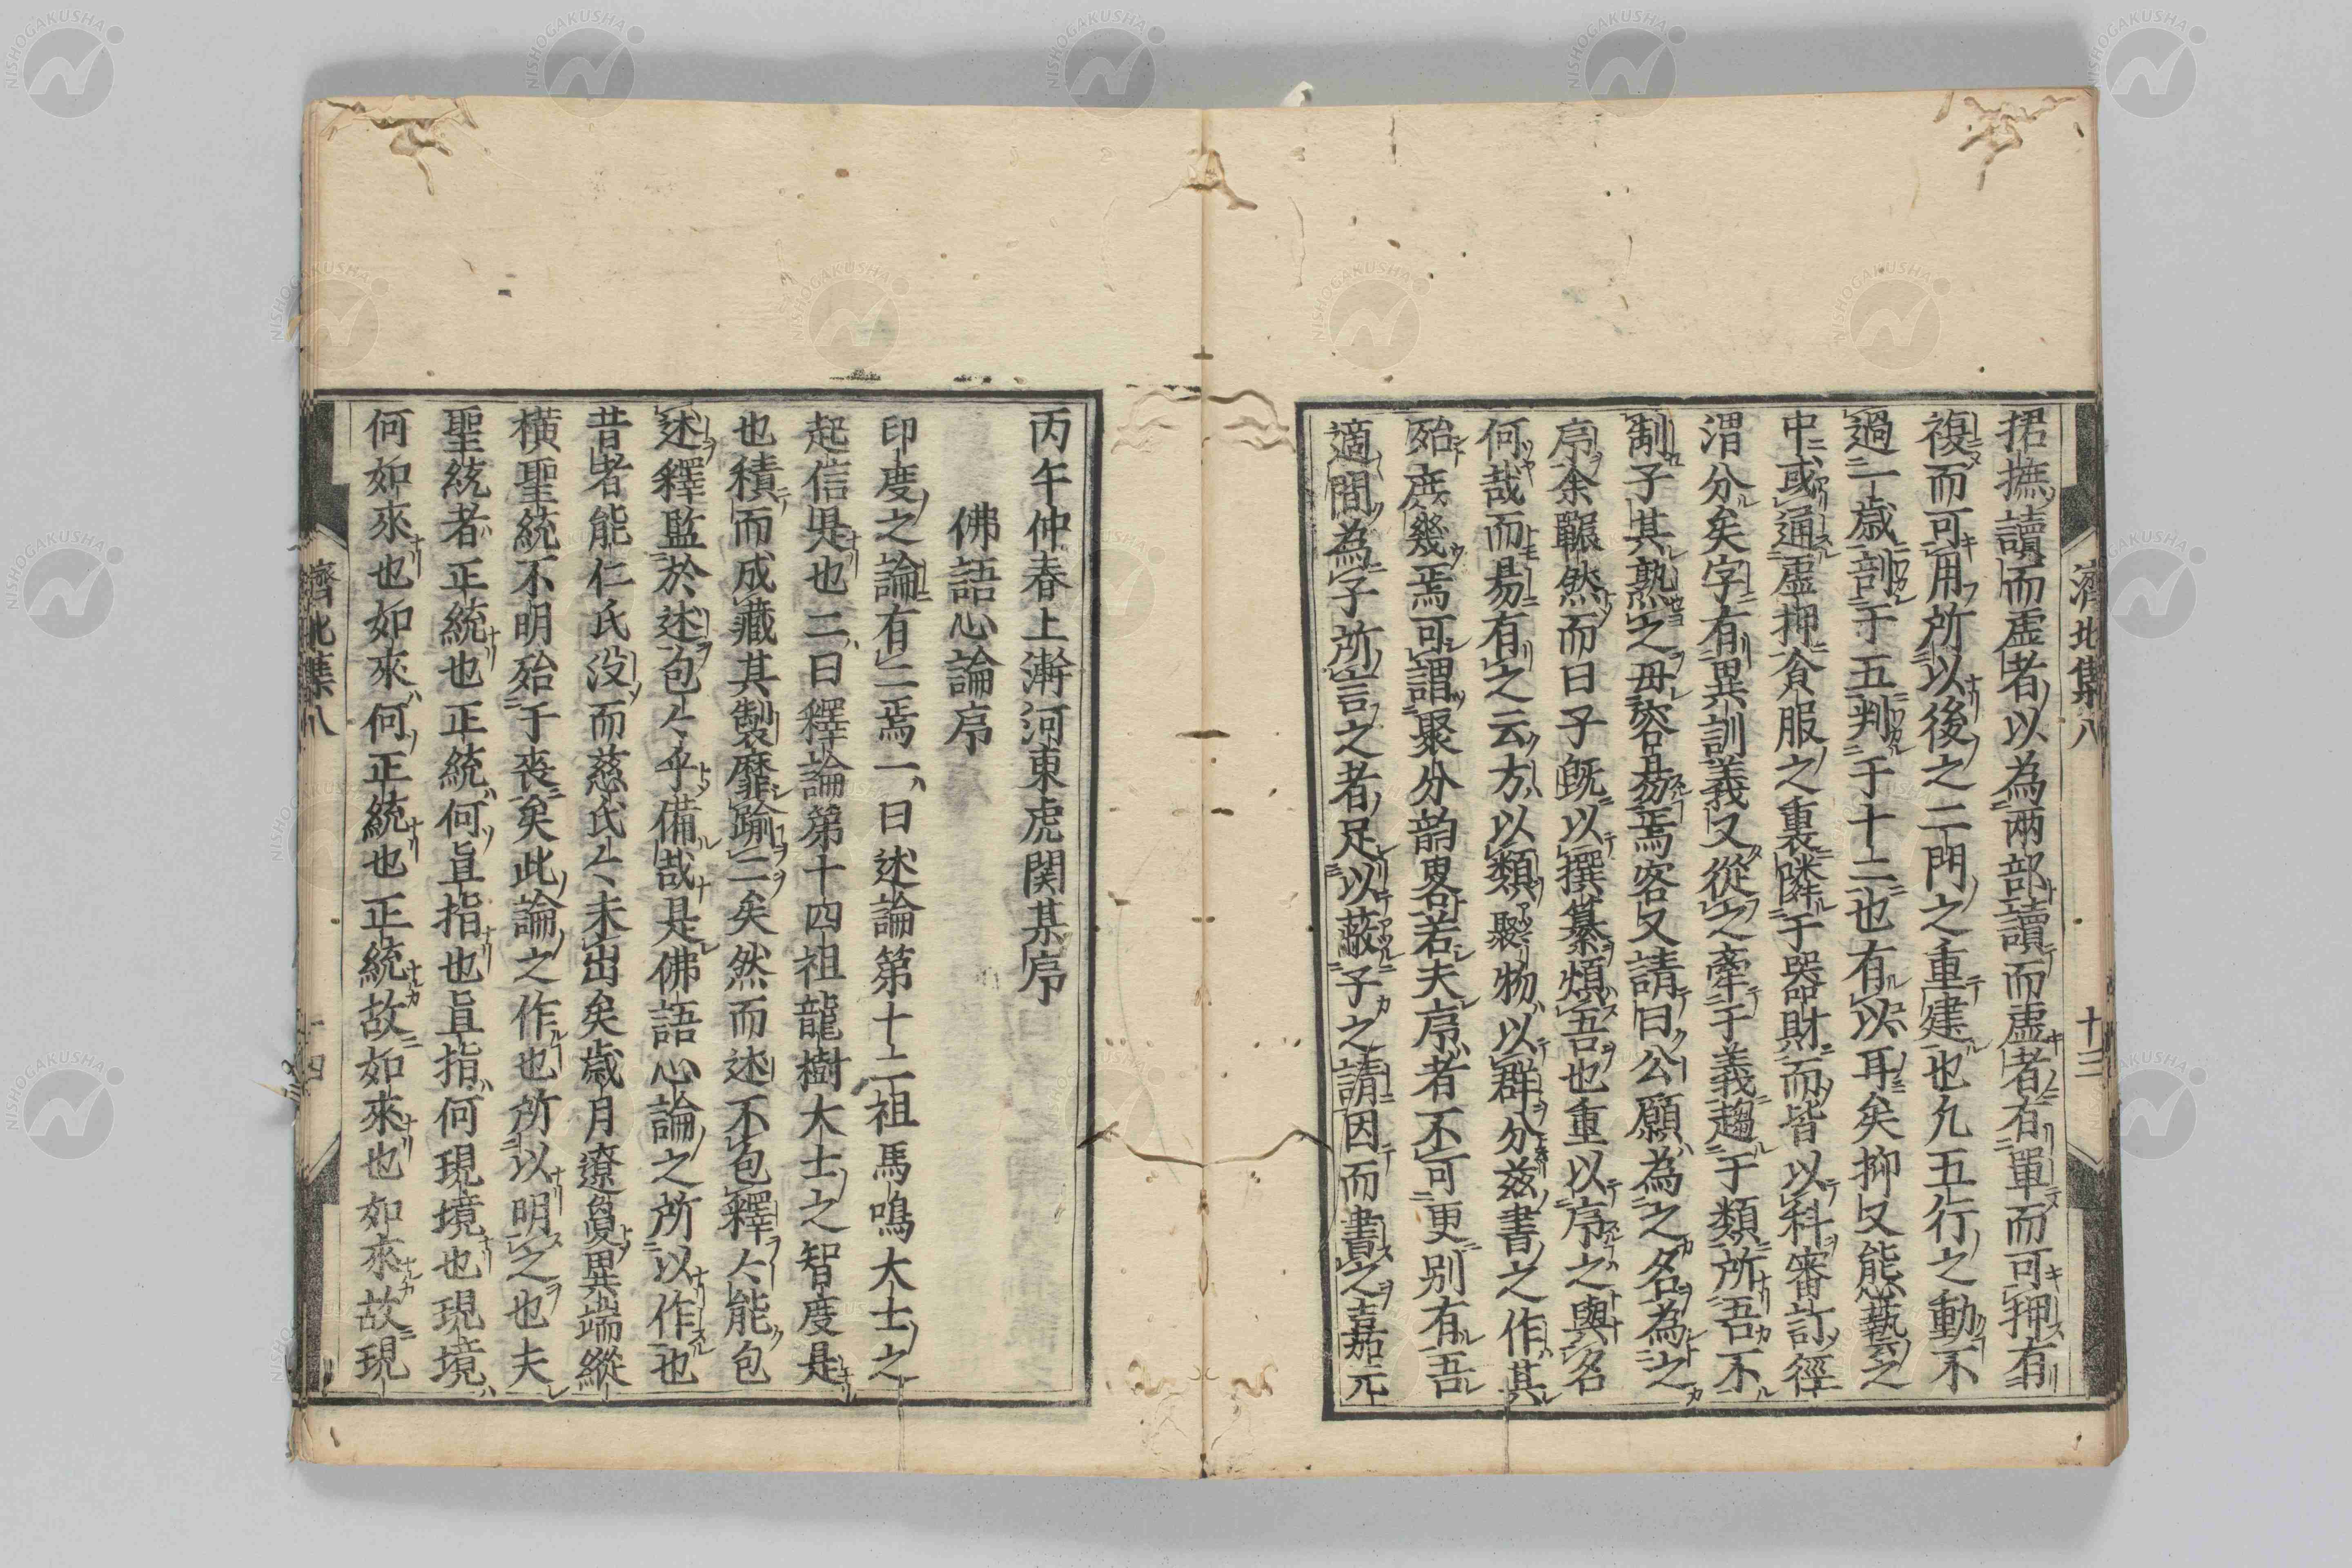 濟北集八
十三
捃摭讀而虚者以為兩部讀而虚者有單而可押有
複而可用所以後之二門之重建也九五行之動不
過一歳剖于五判于十二也有以耳矣抑又能藝之
中或通虚押貪服之重裏隣于器財而皆以科審訂徑
渭分矣字有異訓義又從之牽于義趨于類所吾不
制子其熟之毋容易焉客又請曰公願為之名為之
序余囅然而曰子既以撰纂煩吾也重以序之與名
何哉而易有之云方以類聚物以群分玆書之作其
殆庶幾焉可謂聚分韵畧若夫序者不可更別有吾
適間為子所言之者足以蔽子之請因而書之嘉元
丙午仲春上澣河東虎関某序
佛語心論序
印度之論有二焉一曰述論第十二祖馬鳴大士之
起信是也二曰釋論第十四祖龍樹大士之智度是
也積而成藏其製靡踰二矣然而述不包釋々能包
述釋監於述包々乎備哉是佛語心論之所以作也
昔者能仁氏没而慈氏々未出矣歳月遼夐異端縱
横聖統不明殆于喪矣此論之作也所以明之也夫
聖統者正統也正統何眞指也眞指何現境也現境
何如來也如來何正統也正統故如來也如來故現
濟北集八
十四